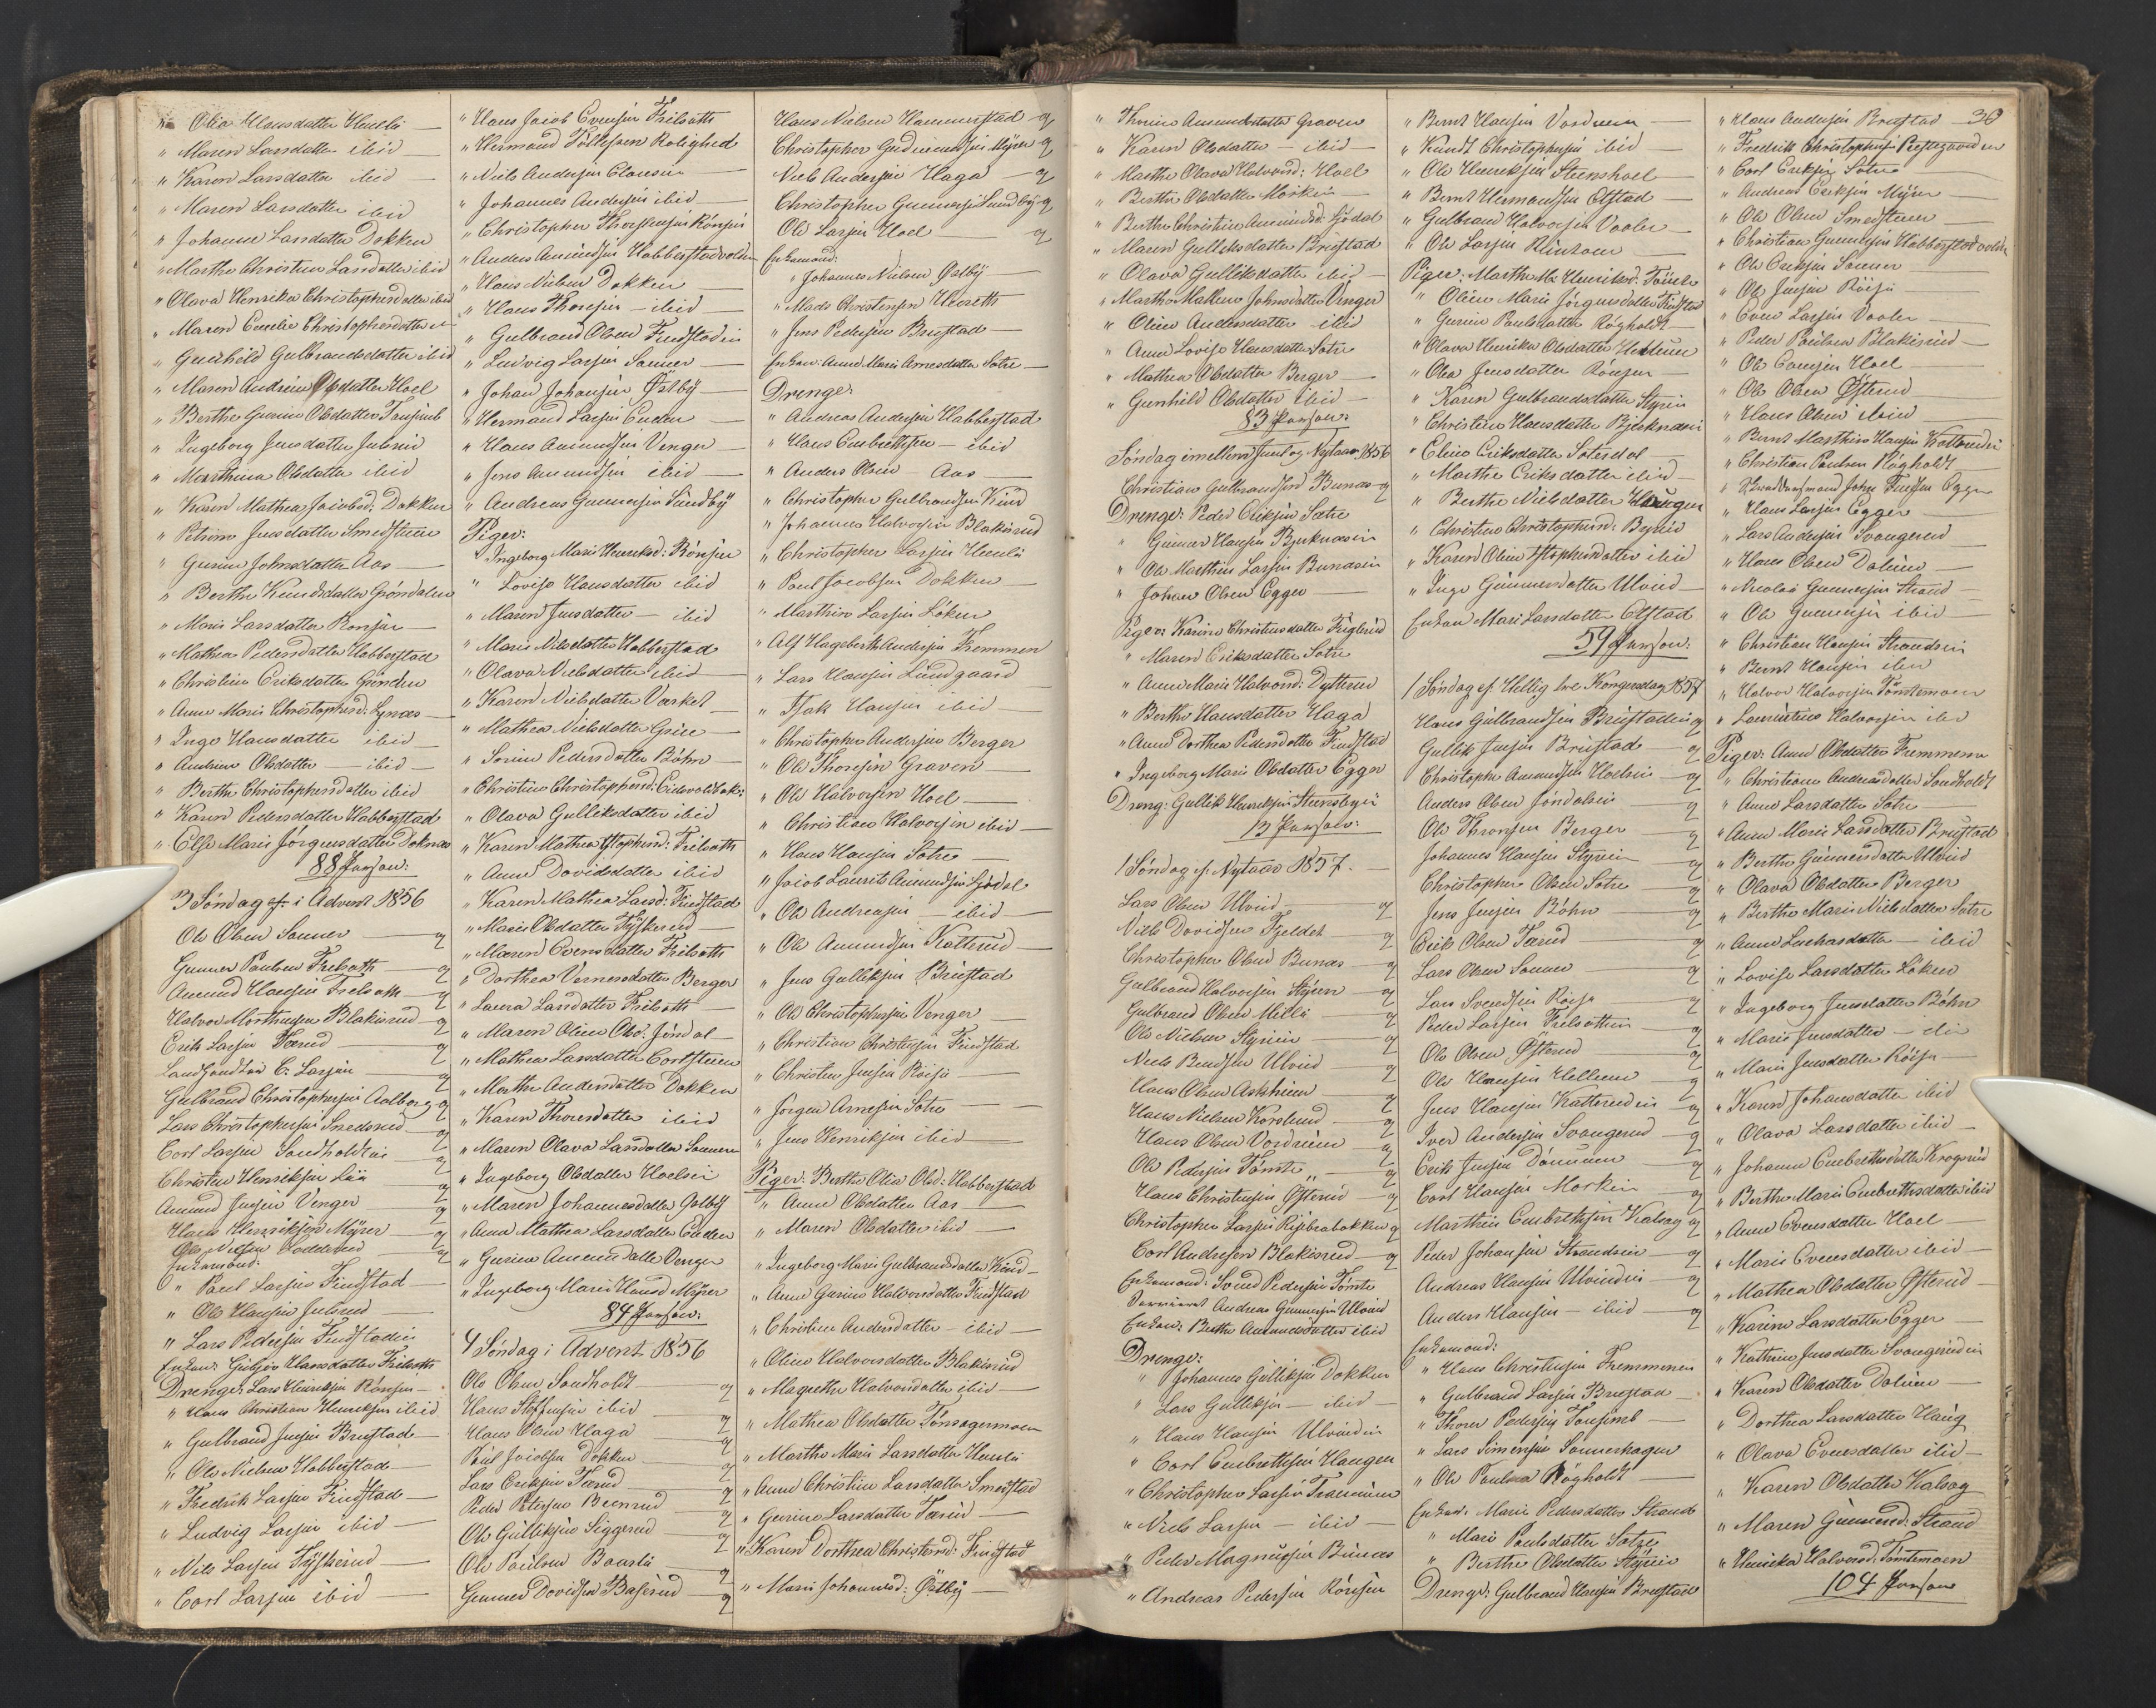 " Olia Hansdatter Huuslii
" Maren Larsdatter ibid
" Karen Larsdatter ibid
" Maren Larsdatter ibid
" Johanne Larsdatter Dokken
" Marthe Christine Larsdatter ibid
" Olava Henrika Christophersdatter ibid
" Maren Emelie Christophersdatter
" Gunhild Gulbrandsdatter ibid
" Maren Andrine Olsdatter Hoel
" Berthe Gurine Olsdatter
" Ingeborg Jensdatter Julsrud
" Marthina Olsdatter ibid
" Karen Mathea Jacobsd: Dokken
" Petrine Jensdatter Smedstuen
" Gurine Johnsdatter Aas
" Berthe Knudsdatter Grøndalen
" Marie Larsdatter Ronsen
" Mathea Pedersdatter Habberstad
" Christine Eriksdatter
" Anne Marie Christophersd: Synæs
" Inge Hansdatter ibid
" Andrine Olsdatter ibid
" Berthe Christophersdatter ibid
" Karen Pedersdatter Habberstad
" Else Marie Jørgensdatter Doknæs
88 Person:
3 Søndag i Advent 1856
Ole Olsen Sonner q
Gunner Paulsen Frilseth q
Amund Hansen Frilseth q
Halvor Morthensen Blakisrud q
Erik Larsen Tærud q
Landhandler C. Larsen q
Gulbrand Christophersen Aalborg q
Lars Christophersen Snedsrud q
Carl Larsen Sandholdtei q
Christen Henriksen Lia q
Amund Jensen Venger q
Hans Henriksen Myrer q
Ole Nilsen Loddrud q
Enkemænd:
" Paul Larsen Findstad
" Ole Hansen Julsrud
" Lars Pedersen Findstadei
Enken: Gubjør Hansdatter Frilseth
Drenge: Lars Henriksen Rønsen
" Hans Christian Henriksen ibid
" Gulbrand Jensen Brustad
" Ole Nielsen Habberstad
" Fredrik Larsen Findstad
" Ludvig Larsen ibid
" Nils Larsen Tyskerud
" Carl Larsen ibid
" Hans Jacob Evensen Frilseth
" Hermand Tollefsen Rolighed
" Niels Andersen Clausen
" Johannes Andersen ibid
" Christopher Thorstensen Rønsen
" Anders Amundsen Habberstadvolden
" Hans Nielsen Dokken
" Hans Thoresen ibid
" Gulbrand Olsen Findstadei
" Ludvig Larsen Sonner
" Johan Johansen Østby
" Hermand Larsen Enden
" Hans Amundsen Venger
" Jens Amundsen ibid
" Andreas Gunnersen Sundby
Piger:
" Ingeborg Marie Henriksd: Rønsen
" Lovise Hansdatter ibid
" Maren Jensdatter ibid
" Marie Nilsdatter Habberstad
" Olava Nielsdatter ibid
" Karen Nielsdatter Værket
" Mathea Nielsdatter
" Sorine Pedersdatter Bøhn
" Christine Christophersd: Eidsvoldbak:
" Olava Gulliksdatter ibid
" Karen Mathea Christophersd: Frilseth
" Anne Davidsdatter ibid
" Karen Mathea Larsd: Findstad
" Marie Olsdatter Tyskerud
" Maren Evensdatter Frilseth
" Dorthea Vernersdatter Berger
" Laura Larsdatter Frilseth
" Maren Oline Olsd: Jøndal
" Mathea Larsdatter
" Marthe Andersdatter Dokken
" Karen Thoresdatter ibid
" Maren Olava Larsdatter Sonneren
" Ingeborg Olsdatter Hoelsei
" Maren Johannesdatter Østby
" Anne Mathea Larsdatter Enden
" Gurine Amundsdatter Venger
" Ingeborg Marie Hansd Myrer
84 Person:
4 Søndag i Advent 1856
Ole Olsen Sandholdt q
Hans Steffensen ibid q
Hans Olsen Haga q
Paul Jacobsen Dokken q
Lars Eriksen Tærud q
Peder Petersen Beenrud q
Ole Gulliksen Siggerud q
Ole Paulsen Baarli q
Gunner Davidsen Baserud q
Hans Nielsen Hammerstad q
Christopher Gudmundsen Myrer q
Niels Andersen Haga q
Christopher Gunnersen Sundby q
Ole Larsen Hoel q
Enkemænd:
" Johannes Nielsen Østby
" Mads Christensen Hemseth
" Jens Pedersen Brustad
Enken: Anne Marie Arnesdatter Sætre
Drenge:
" Andreas Andersen Habberstad
" Hans Embretsen ibid
" Anders Olsen Aas
" Christopher Gulbrandsen Kind
" Johannes Halvorsen Blakisrud
" Christopher Larsen Huusli
" Paul Jacobsen Dokken
" Marthin Larsen Løken
" Alf Hagebert Andersen Fremmen
" Lars Hansen Lundgaard
" Isak Hansen ibid
" Christopher Andersen Berger
" Ole Thoresen Graven
" Ole Halvorsen Hoel
" Christian Halvorsen ibid
" Hans Hansen Sætre
" Jacob Laurits Amundsen Gjødal
" Ole Andreasen ibid
" Ole Amundsen Katterud
" Jens Gulliksen Brustad
" Ole Christophersen Venger
" Christian Christensen Findstad
" Christen Jensen Røise
" Jørgen Arnesen Sætre
" Jens Henriksen ibid
Piger: Berthe Olia Olsd: Habberstad
" Anne Olsdatter Aas
" Maren Olsdatter ibid
" Ingeborg Marie Gulbrandsdatter Kind
" Anne Gurine Halvorsdatter Findstad
" Christine Andersdatter ibid
" Oline Halvorsdatter Blakisrud
" Magrethe Halvorsdatter ibid
" Mathea Olsdatter Tønsagermoen
" Marthe Marie Larsdatter Huusli
" Anne Christine Larsdatter Smedstad
" Gurine Larsdatter Tærud
" Karen Dorthea Christensd: Findstad
" Marie Johannesd: Østby
" Thorine Amundsdatter Graven
" Karen Olsdatter ibid
" Marthe Olava Halvorsd: Hoel
" Berthe Olsdatter Morkin
" Berthe Christine Amundsd: Gjødal
" Maren Gulliksdatter Brustad
" Olava Gulliksdatter ibid
" Marthe Mallene Johnsdatter Venger
" Oline Andersdatter ibid
" Anne Lovise Hansdatter Sætre
" Mathea Olsdatter Berger
" Gunhild Olsdatter ibid
83 Person:
Søndag imellem Juul og Nytaar 1856
Christian Gulbrandsen Bunæs q
Drenge: Peder Eriksen Sætre
" Gunner Hansen Bjerknæsei
" Ole Marthin Larsen Bunæsei
" Johan Olsen Egger
Piger: Karine Christensdatter Fuglerud
" Maren Eriksdatter Sætre
" Anne Marie Halvorsd: Dytterud
" Berthe Hansdatter Haga
" Anne Dorthea Pedersdatter Findstad
" Ingeborg Marie Olsdatter Egger
Dreng: Gullik Henriksen Steensbyei
13 Person:
1 Søndag ef. Nytaar 1857.
Lars Olsen Ulviid q
Niels Davidsen Fjeldet q
Christopher Olsen Bunæs q
Gulbrand Halvorsen Styren q
Gulbrand Olsen Milli q
Ole Nielsen Styriei q
Niels Bendsen Ulviid q
Hans Olsen Askheim q
Hans Nielsen Korslund q
Hans Olsen Vordreien q
Ole Pedersen Tømte q
Hans Christensen Østerud q
Christopher Larsen Ripsbæbakken q
Carl Andersen Blakisrud q
Enkemand: Svend Pedersen Tømte
Andreas Gunnersen Ulviid
Enken: Berthe Amundsdatter ibid
Drenge:
" Johannes Gulliksen Dokken
" Lars Gulliksen ibid
" Hans Hansen Ulviidei
" Carl Embretsen Haugen
" Christopher Larsen
" Niels Larsen ibid
" Peder Magnusen Bunæs
" Andreas Pedersen Rønsen
" Bernt Hansen
" Knudt Christophersen ibid
" Ole Henriksen Steenshoel
" Bernt Hermandsen Elstad
" Gulbrand Halvorsen Vaaler
" Ole Larsen
Piger: Marthe M: Henriksd: Tømte
" Oline Marie Jørgensdatter Findstad
" Gurine Paulsdatter Røgholdt
" Olava Henrika Olsdatter Hellum
" Olea Jensdatter Rønsen
" Karen Gulbrandsdatter Styrin
" Christine Hansdatter Bjerknæsei
" Eline Eriksdatter Sætersdal
" Marthe Eriksdatter ibid
" Berthe Nielsdatter Haugen
" Christine Christophersd: Byriid
" Karen Oline Christophersdatter ibid
" Inge Gunnersdatter Ulviid
Enken Mari Larsdatter Elstad
59 Person:
1 Søndag ef. Hellig tre Kongersdag 1857
Hans Gulbrandsen Brustadei q
Gullik Jensen Brustad q
Christopher Amundsen Hoelsei q
Anders Olsen Jøndalsei q
Ole Thronsen Berger q
Johannes Hansen Styriei q
Christopher Olsen Sætre q
Jens Jensen Bøhn q
Erik Olsen Tærud q
Lars Olsen Sonner q
Lars Svendsen Røise q
Peder Larsen Frilsethei q
Ole Olsen Østerud q
Ole Hansen Hellum q
Jens Hansen Katterudei q
Iver Andersen Svangerud q
Erik Jensen Dønnum q
Carl Hansen Morkin q
Marthin Embretsen Kalsøg q
Peder Johansen Strandsei q
Andreas Hansen Ulviidei q
Anders Hansen ibid q
Enkemænd:
" Hans Christensen Fremmenei
" Gulbrand Larsen Brustad
" Thorer Pedersen
" Lars Simensen Sonnerhagen
" Ole Paulsen Røgholdt
Enken: Marie Pedersdatter Strand
" Mari Paulsdatter Sætre
" Berthe Olsdatter Styriei
Drenge: Gulbrand Hansen Brustad
" Hans Andersen Brustad
36
" Fredrik Christophersen
" Carl Eriksen Sætre
" Andreas Eriksen Myrer
" Ole Olsen Smedstuen
" Christian Gunnersen Habberstadvolden
" Ole Eriksen Sonner
" Ole Jensen Røise
" Even Larsen Vaaler
" Peder Paulsen Blakisrud
" Ole Evensen Hoel
" Ole Olsen Østerud
" Hans Olsen ibid
" Bernt Marthin Hansen Katterudei
" Christian Paulsen Røgholdt
" John Findsen Egger
" Hans Larsen Egger
" Lars Andersen Svangerud
" Hans Olsen Dalein
" Nicolai Gunnersen Strand
" Ole Gunnersen ibid
" Christian Hansen Strandsei
" Bernt Hansen ibid
" Halvor Halvorsen Tømtemoen
" Laurintius Halvorsen ibid
Piger: Anne Olsdatter Fremmenei
" Christiane Andersdatter Sandholdt
" Anne Larsdatter Sætre
" Anne Marie Larsdatter Brustad
" Berthe Gunnersdatter Ulviid
" Olava Olsdatter Berger
" Berthe Marie Nielsdatter Sætre
" Anne Zachariasdatter ibid
" Lovise Larsdatter Løken
" Ingeborg Jensdatter Bøhn
" Marie Jensdatter ibid
" Mari Jensdatter Røise
" Karen Johansdatter ibid
" Olava Larsdatter ibid
" Johanne Embretsdatter Krogsrud
" Berthe Marie Embretsdatter ibid
" Anne Evensdatter Hoel
" Marie Evensdatter ibid
" Mathea Olsdatter Østerud
" Karine Larsdatter Egger
" Kathrine Jensdatter Svangerudei
" Karen Olsdatter Dalein
" Dorthea Larsdatter Haug
" Olava Evensdatter ibid
" Karen Olsdatter Kalsøg
" Maren Gunnersd: Strand
" Henrika Halvorsd: Tømtemoen
104 Person